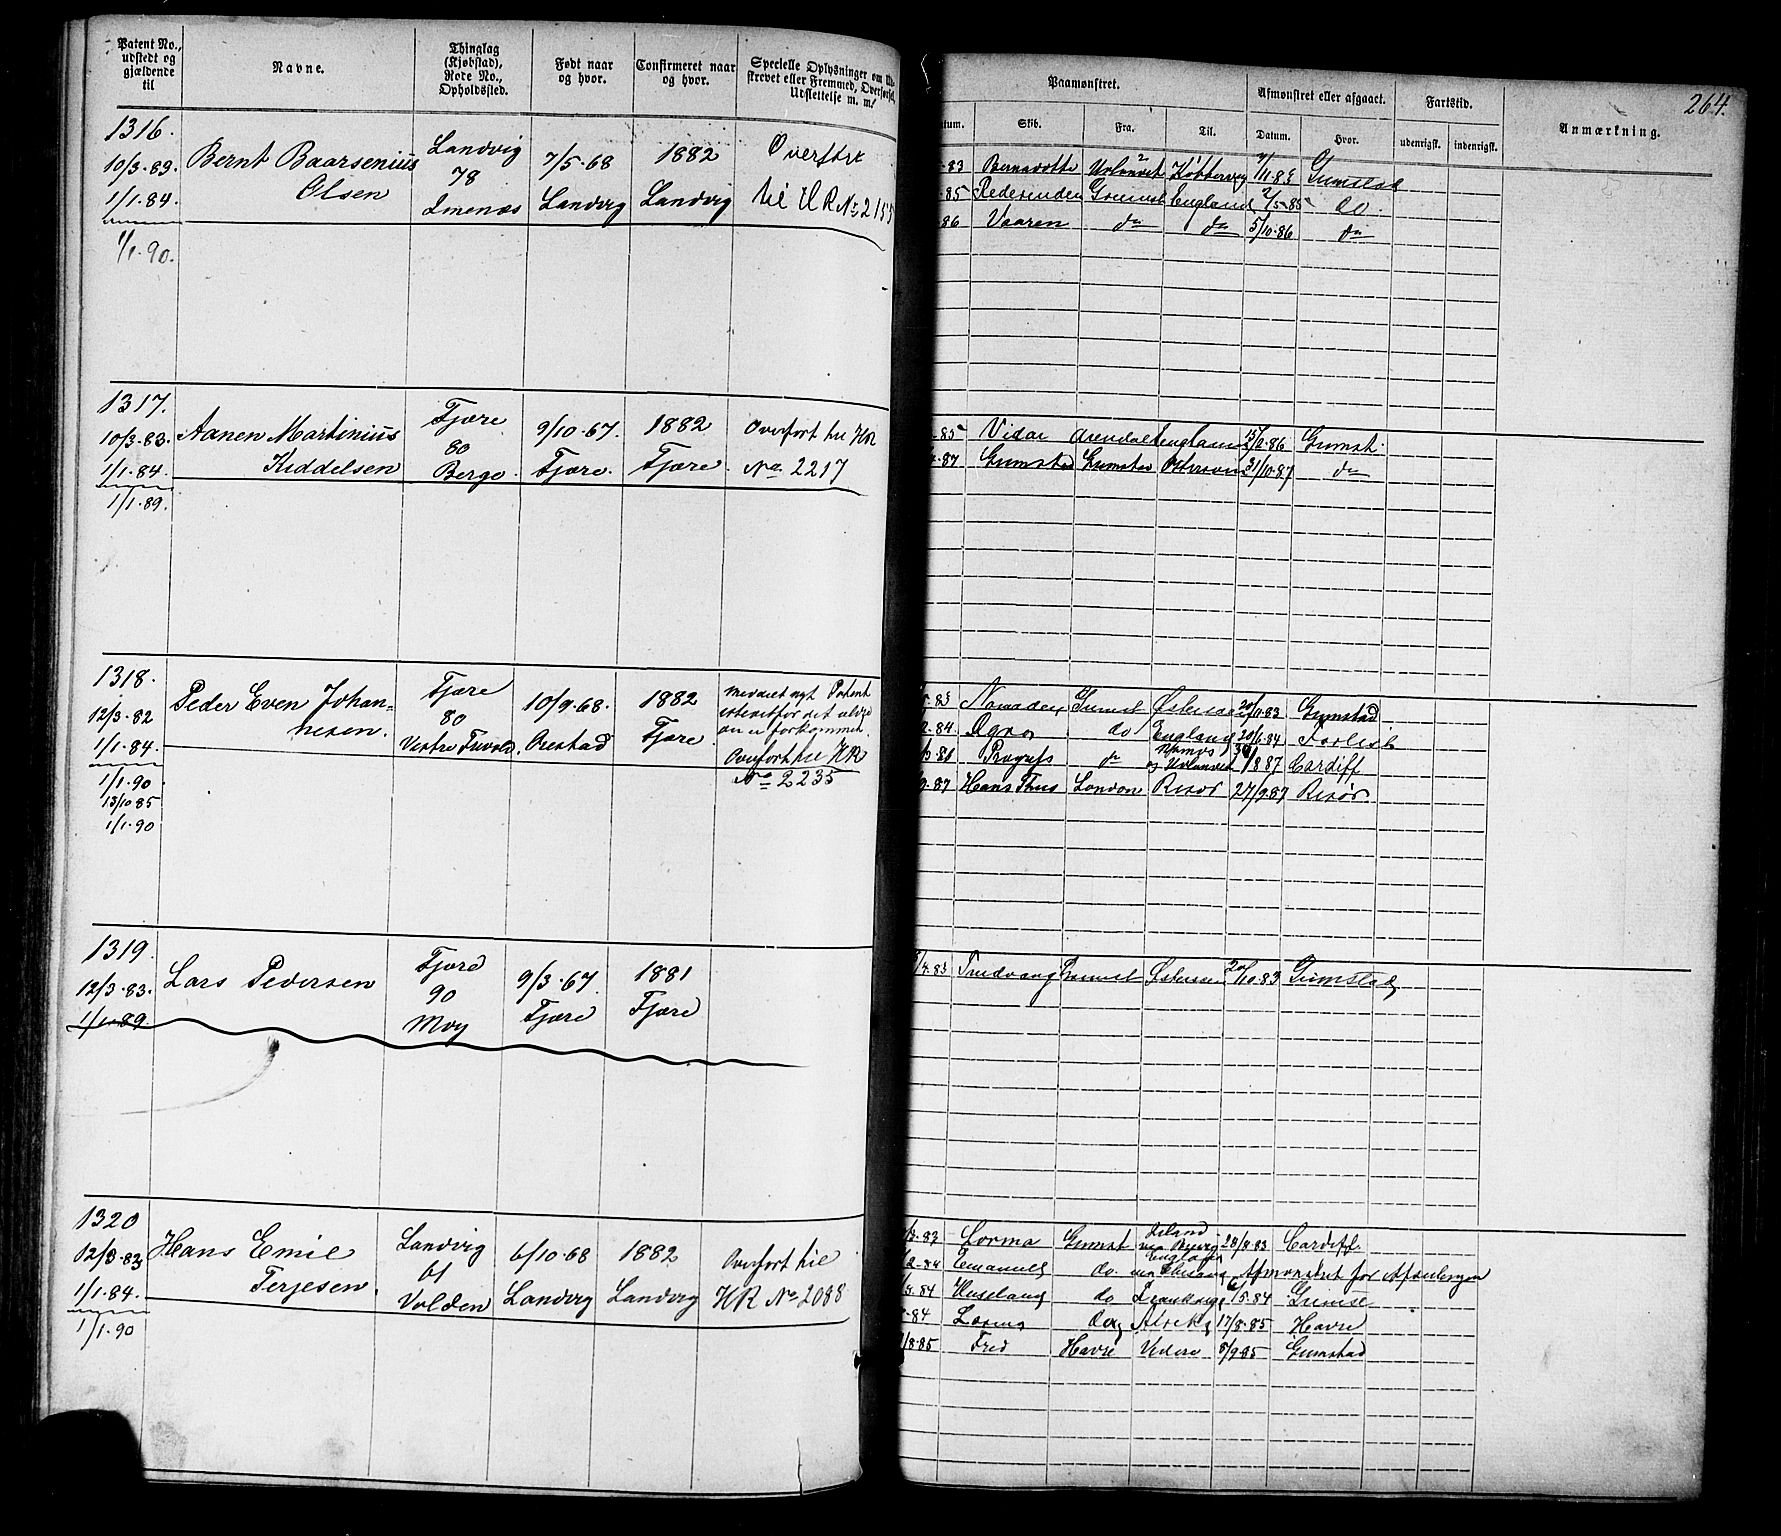 Patent No., udstedt og gjældende til
Navne.
Thinglag (Kjøbstad), Rode No., Opholdssted.
Født naar og hvor.
Confirmeret naar og hvor.
Specielle Oplysninger om
strevet eller Fremmed, Overførsel,
Udslettelse m. m.
Paamønstret.
Afmønstret eller afgaaet.
Fartstid.
Anmærkning.
264.
Skib.
Fra.
Til.
Datum.
Hvor.
udenrigsk.
indenrigsk.
1316.
10/3-89.
1/1-84.
1/1-90.
Bernt Baarsenius
Olsen
Landvig
78
Imenæs
7/5-68
Landvig
1882
Landvig
Overført
til H R No 215
83 Bernadotte 7/11 83 Grimstad
85 Grimst England 2/5-85 do.
86 Vaaren do do 5/10-86 do
1317.
10/3-83.
1/1-84.
1/1-89.
Aanen Martinius
Kiddelsen
Fjære
80
Berge.
9/10-67.
Fjære.
1882
Fjære
Overført til HR
No. 2217
85 Vidar Arendal England 86 Grimst.
87 Grimstad Grimstad Østersøen 31/10-87 do
1318.
12/3-82
1/1-84.
1/1-90
13/10 85
1/1-90
Peder Even Johan=
nesen.
Fjære
80
Vestre
10/9-68.
1882
Fjære.
meddelt nyt Patent
istedetfor det
an er forkommet.
Overført til HR
No 2235
83 Nomaden Grimst Østersøen 83 Grimstad
84 do England 20/6-84
Progress do og 8 87 Cardiff
87 Hans Thiis London Risør 27/9 87 Risør.
1319.
12/3-83.
1/1-89.
Lars Pedersen
Fjære
90
Moy
9/3-67.
Fjære
1881
Fjære
4.83 Grimst Østersøen 10-83 Grimstad
1320
12/3-83
1/1-84.
1/1-90
Hans Emil
Terjesen.
Landvig
61
Volden
6/10-68
Landvig
1882
Landvig
Overført til
HR No 2088
83 Lorma Grimst 28/8-83 Cardiff
84 Emanuel do. Afmønstret før Afseilingen
84 do 5.84
84 17/8-85 Havre
8-85 Fred Havre 8/9-85 Grimstad